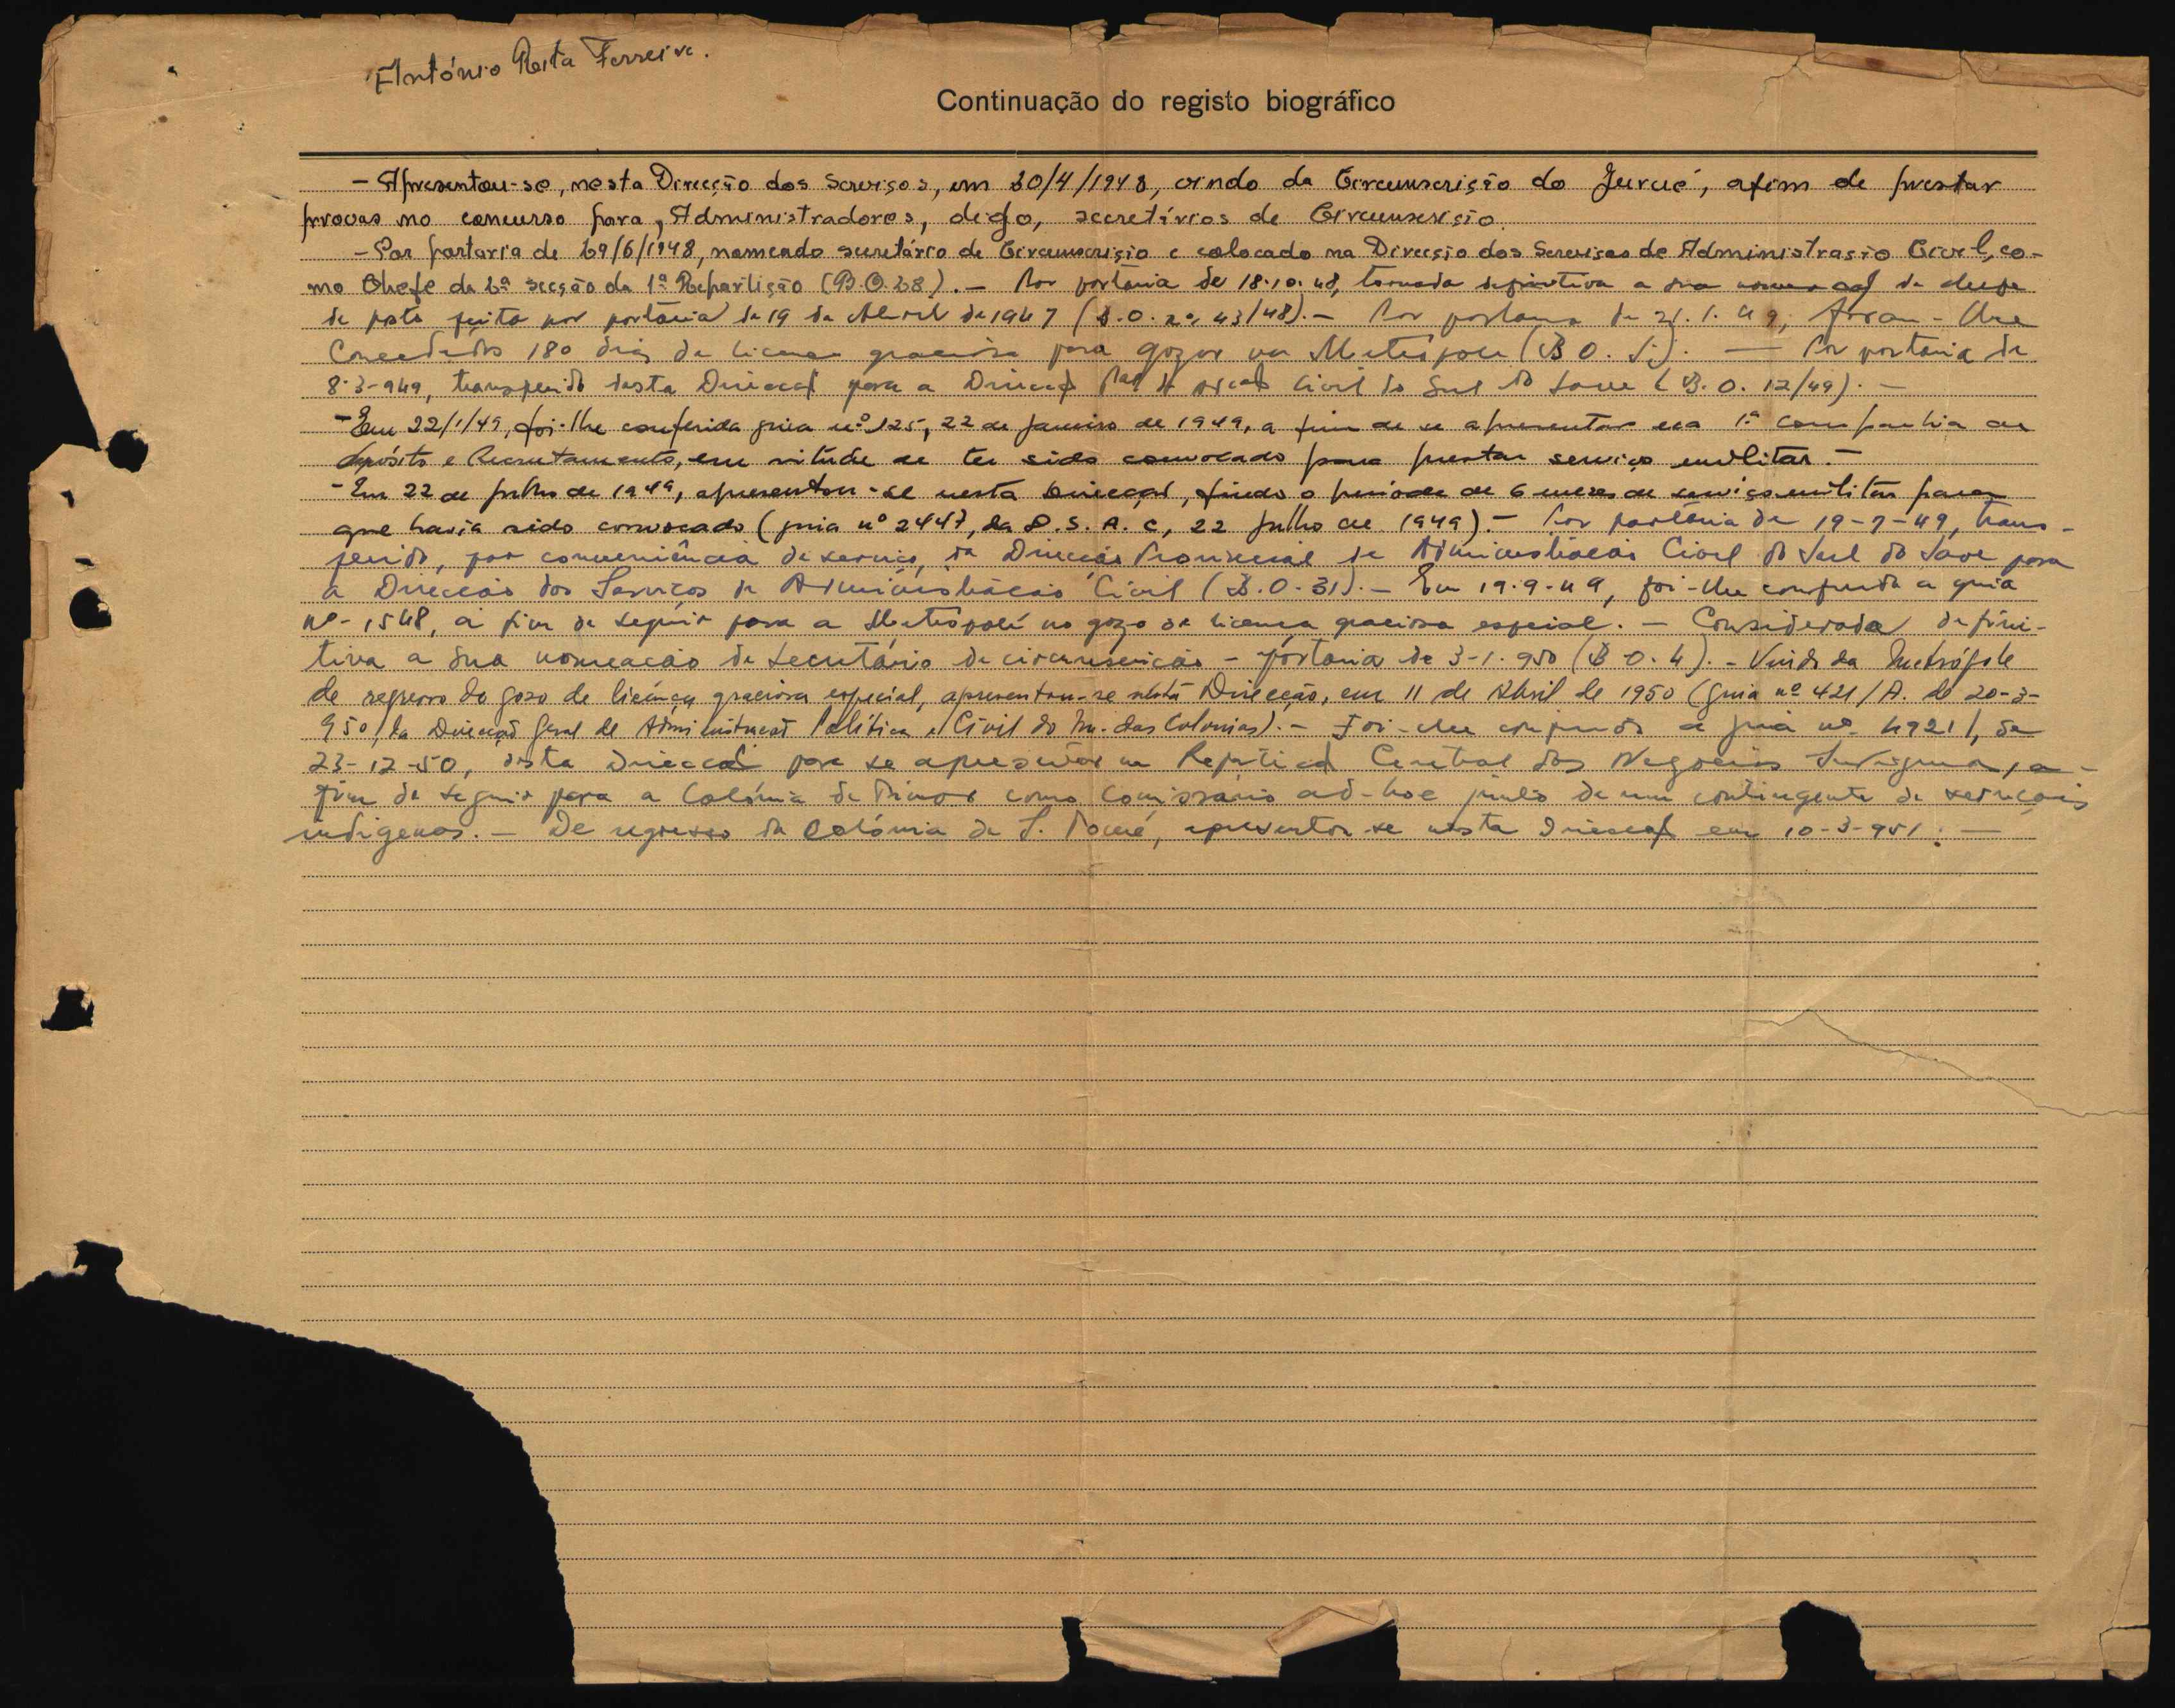 António Rita Ferreira.
Continuação do registo biográfico
- Apresentou-se, nesta Direcção dos Serviços, em 20/4/1948, vindo da Circunscrição do Gurué, afim de prestar
provas no concurso para, Administradores, digo, secretários de Circunscrição.
- Por portaria de 29/6/1948, nomeado secretário de Circunscrição e colocado na Direcção dos Serviços de Administração Civil, co-
mo Chefe da 2ª secção da 1ª Repartição (B.O. 28). - Por portaria de 18-10-48, tornada definitiva a sua nomeação de chefe
de posto feita por portaria de 19 de Abril de 1947 (B.O. nº 43/48). - Por portaria de 21.1.49, foram-lhe
Concedidos 180 dias de licença graciosa para gozar na Metrópole (B.O. 5). — Por portaria de
8-3-949, transferido desta Direcção para a Direcção Civil do Sul do Save (B.O. 12/49). -
- Em 22/1/49, foi-lhe conferida guia nº 125, 22 de Janeiro de 1949, a fim de se apresentar na 1ª Companhia de
depósito e Recrutamento, em virtude de ter sido convocado para prestar serviço militar. -
- Em 22 de julho de 1949, apresentou-se nesta Direcção, findo o período de 6 meses de serviço militar para
que havia sido convocado (guia nº 2447, da D.S.A.C, 22 julho de 1949). - Por portaria de 19-7-49, trans-
ferido, por conveniência de serviço, da Direcção Provincial de Administração Civil do Sul do Save para
a Direcção dos Serviços de Administração Civil (B.O. 31). - Em 19-9-49, foi-lhe conferida a guia
nº 1548, a fim de seguir para a Metrópole no gozo de licença graciosa especial. - Considerada defini-
tiva a sua nomeação de Secretário de circunscrição - portaria de 3-1-950 (B.O. 4). - Vindo da Metrópole
de regresso do gozo de licença graciosa especial, apresentou-se nesta Direcção, em 11 de Abril de 1950 (guia nº 421/A. de 20-3-
950, da Direcção Geral de Administração Política e Civil do M. das Colonias). - Foi-lhe conferida a guia nº 4921/, de
23-12-50, desta Direcção para se apresentar na Repartição Central dos Negócios Indígenas, a-
fim de seguir para a Colónia de Timor como Comissário ad-hoc junto de um contingente de serviçais
indígenas. - De regresso da Colónia de S. Tomé, apresentou-se nesta Direcção em 10-3-951. —